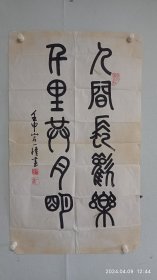 人間長歡樂
千里共月明
壬申
2024.04.09 12:44